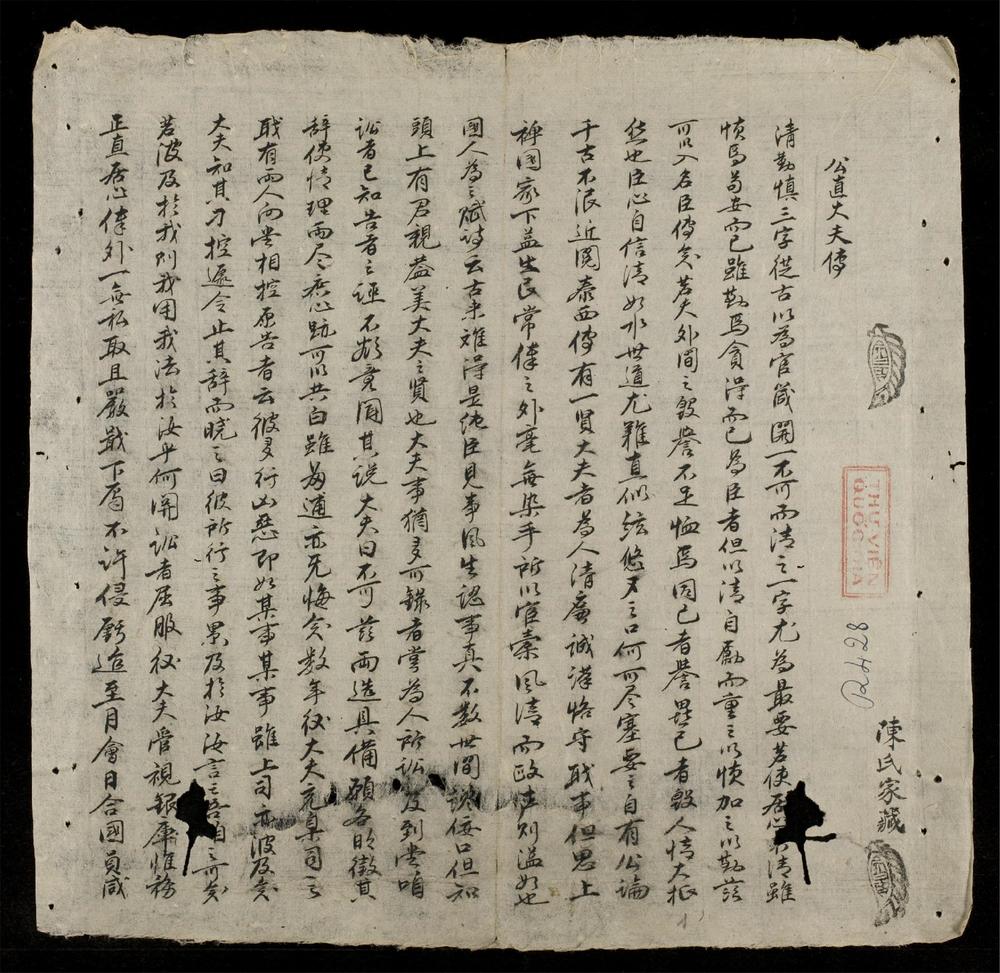 陳氏家藏
THƯ VIỆN
QUỐC GIA
R.428
公直大夫傳
清勤慎三字從古以為官箴開一不可而清之一字尤為最要若使居心不清雖
慎焉苟安而已雖勤焉貪得而已為臣者但以清自勵而重之以慎加之以勤茲
可以入名臣傳矣若夫外間之毀譽不足恤焉因已者譽異已者毀人情大抵
然也臣心自信清如水世道尤難直似絃悠々之口何可尽塞要之自有公論
千古不泯近閱泰西傳有一賢大夫者為人清廉誠謹恪守職事但思上
裨國家下益生民常俸之外毫無染手所以宦橐風清而政法則溢如也
國人為之賦詩云古来難得是純臣見事風生認事真不教世間諛佞口但知
頭上有君親蓋美大夫之賢也大夫事猶多可錄者嘗為人所訟及到堂
訟者已知告者之誣不敢竟其說大夫曰不可茲両造具備願各明徵其
辞使情理両尽庶心跡可以共白雖為逋亦无悔矣数年後大夫充臬司之
職有両人向堂相控原告者云彼多行凶慝即如某事某事雖上司亦波及矣
大夫知其刁控遽令止其辞而曉之曰彼所行之事累及於汝汝言之吾自之可矣
若波及於我則我用我法於汝乎何関訟者屈服後大夫管視銀庫惟務
正直居心俸外一無私取且嚴戢下属不許侵虧迨至月會日合國員咸